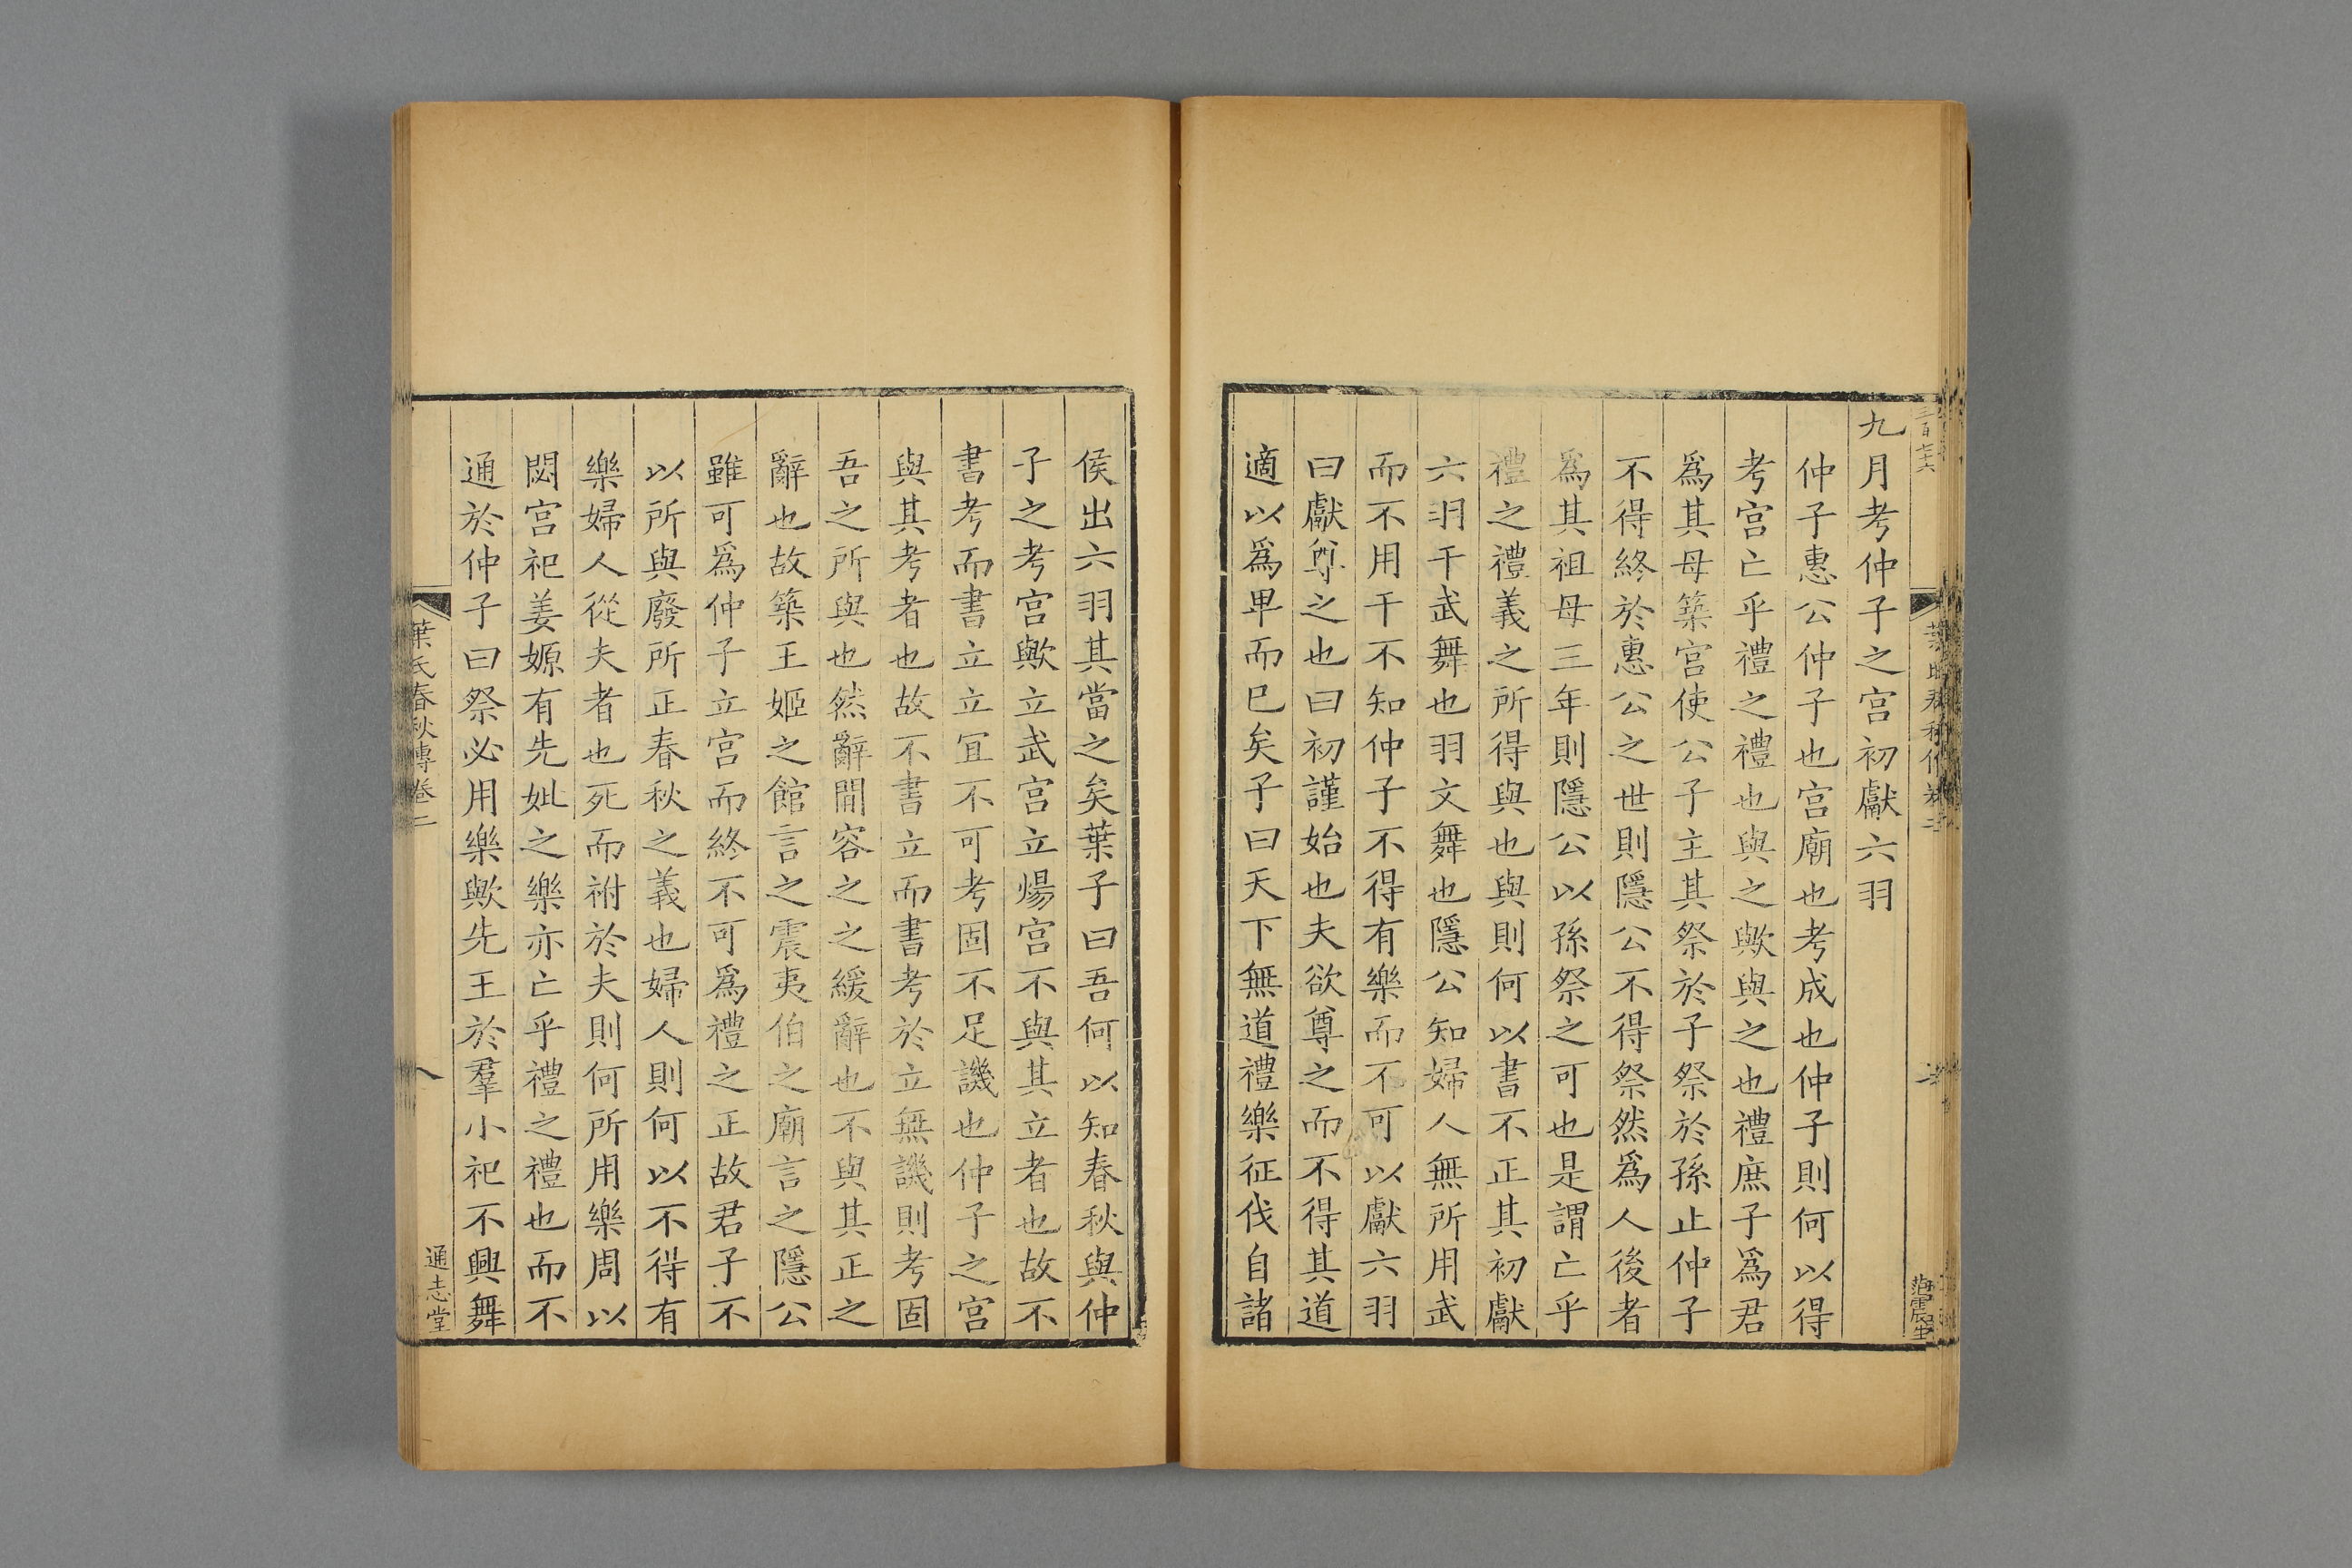 三百七十六
九月考仲子之宮初獻六羽
仲子惠公仲子也宮廟也考成也仲子則何以得
考宮亡乎禮之禮也與之歟與之也禮庶子爲君
爲其母築宮使公子主其祭於子祭於孫止仲子
不得終於惠公之世則隱公不得祭然爲人後者
爲其祖母三年則隱公以孫祭之可也是謂亡乎
禮之禮義之所得與也與則何以書不正其初獻
六羽干武舞也羽文舞也隱公知婦人無所用武
而不用干不知仲子不得有樂而不可以獻六羽
曰獻尊之也曰初謹始也夫欲尊之而不得其道
適以爲卑而已矣子曰天下無道禮樂征伐自諸
侯出六羽其當之矣葉子曰吾何以知春秋與仲
子之考宮歟立武宮立煬宮不與其立者也故不
書考而書立立冝不可考固不足譏也仲子之宮
與其考者也故不書立而書考於立無譏則考固
吾之所與也然辭閒容之之緩辭也不與其正之
辭也故築王姬之館言之震夷伯之廟言之隱公
雖可爲仲子立宮而終不可爲禮之正故君子不
以所與廢所正春秋之義也婦人則何以不得有
樂婦人從夫者也死而祔於夫則何所用樂周以
閟宮祀姜嫄有先妣之樂亦亡乎禮之禮也而不
通於仲子曰祭必用樂歟先王於羣小祀不興舞
葉氏春秋傳卷二
八
通志堂